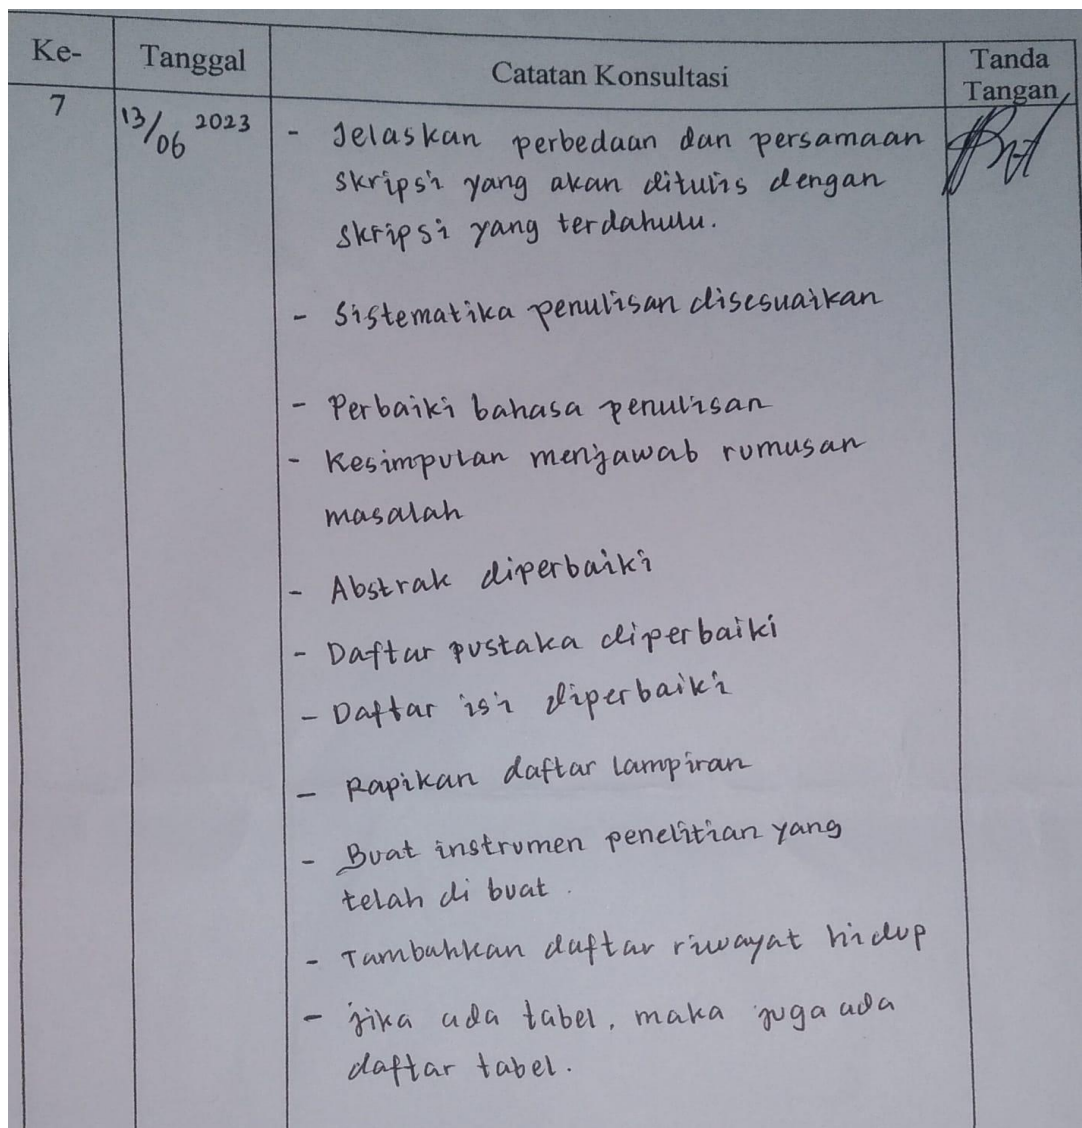 Ke-
Tanggal
Catatan Konsultasi
Tanda
Tangan
7
13/06 2023
- Jelaskan perbedaan dan persamaan
skripsi yang akan ditulis dengan
skripsi yang terdahulu.
- Sistematika penulisan disesuaikan
- Perbaiki bahasa penulisan
- Kesimpulan menjawab rumusan
masalah
- Abstrak diperbaiki
- Daftar pustaka diperbaiki
- Daftar isi diperbaiki
- Rapikan daftar lampiran
- Buat instrumen penelitian yang
telah di buat.
- Tambahkan daftar riwayat hidup
- jika ada tabel, maka juga ada
daftar tabel.